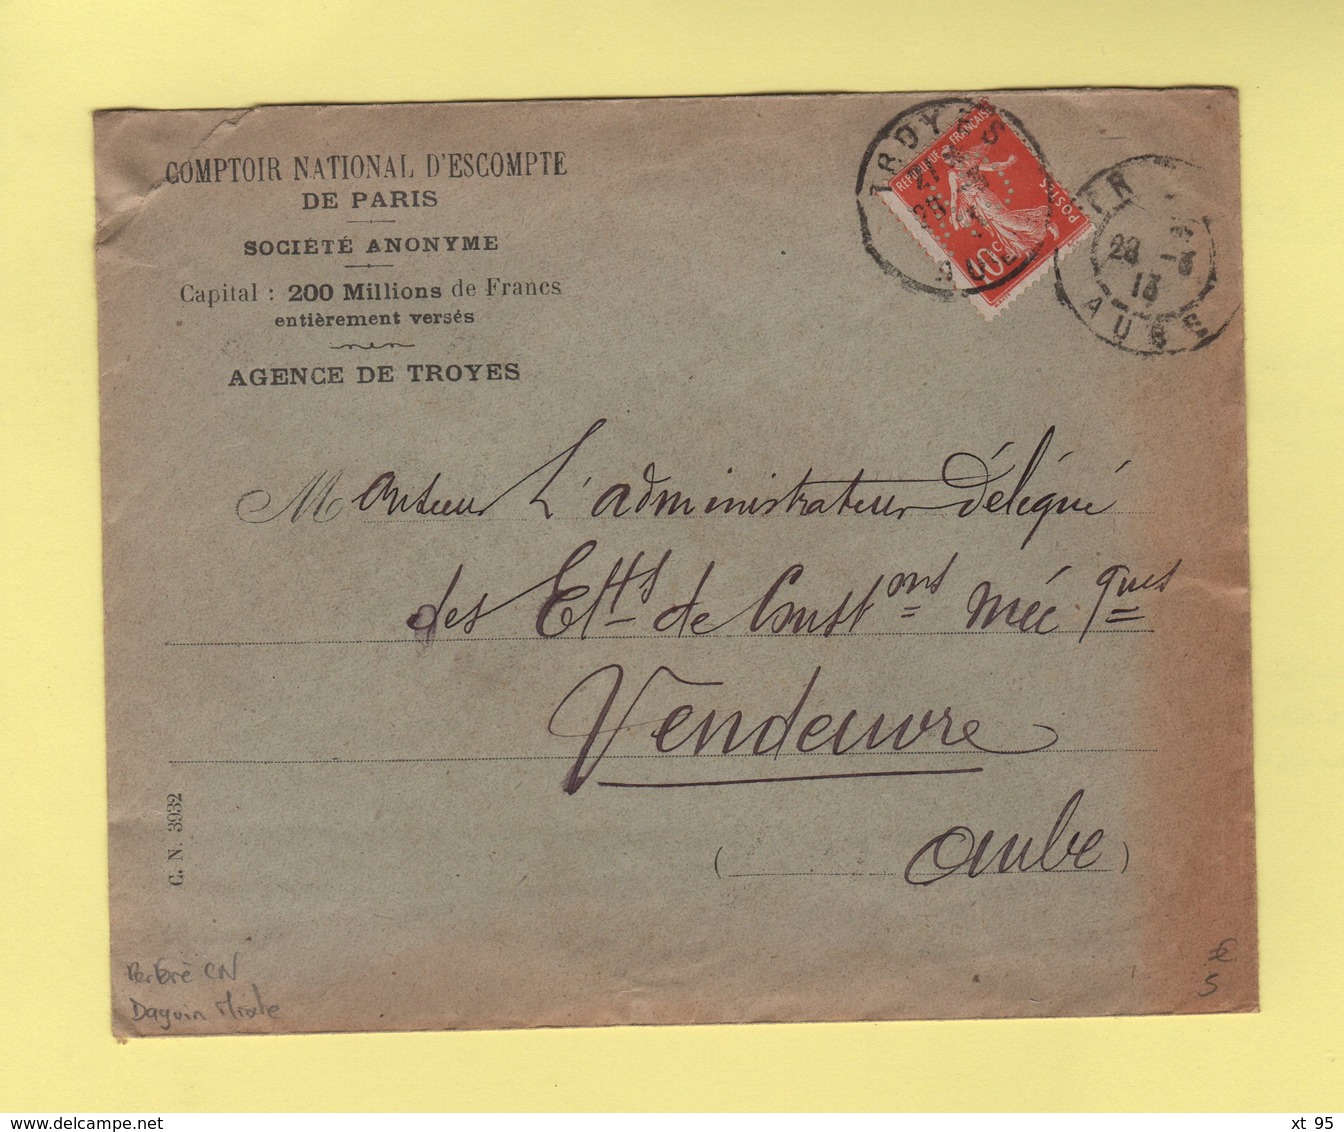 COMPTOIR NATIONAL D'ESCOMPTE
DE PARIS
SOCIÉTÉ ANONYME
Capital : 200 Millions de Francs
entièrement versés
AGENCE DE TROYES
TROYES
AUBE
REPUBLIQUE FRANÇAISE
POSTES
10c
28 -3
13
AUBE
Monsieur L'administrateur Délégué
des Etts de Constons Mécques
Vendeuvre
(Aube)
C. N. 3932
Perforé CN
Daguin Mixte
€
5
xt 95